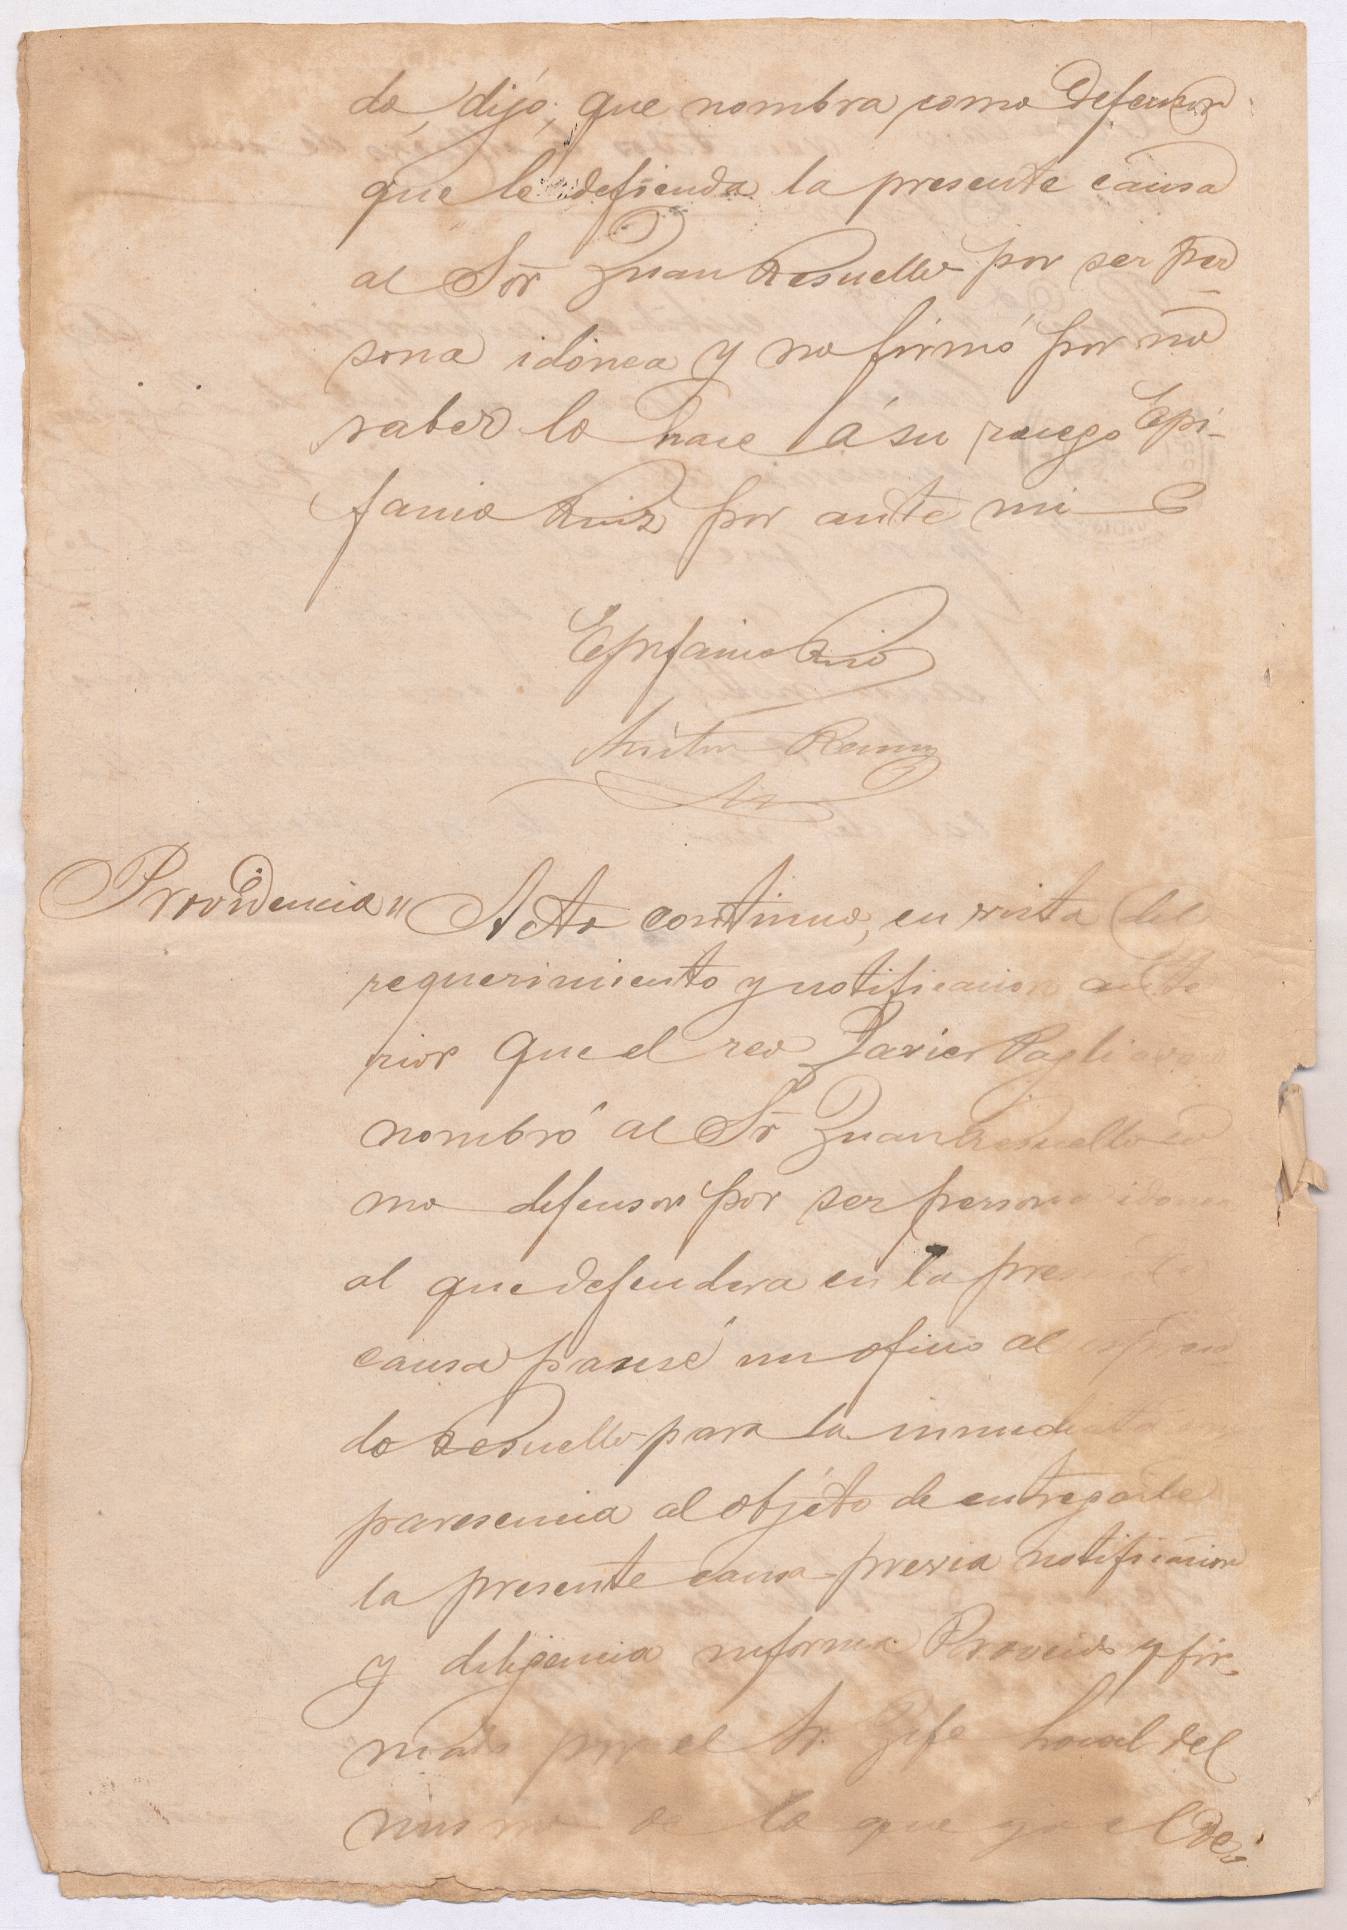 do, dijo; que nombra como defensor
que le defienda la presente causa
al Sõr Juan Resuello por ser per
sona idónea y no firmó por no
saber lo hace á su ruego Epi-
fanio Ruiz por ante mi
Epifanio Ruiz
Ramz
Providencia Acto continuo, en vista del
requerimiento y notificacion ante
rior que el reo Javier Pagli
nombró al Sr Juan Resuello co
mo defensor por ser persona idonea
al que defendera en la presente
causa pausé un oficio al
do Resuello para la inmediata
paresencia al objéto de entregarle
la presente causa previa notificacion
y diligencia en forma Proveido y fir
mado por el Sr. Jefe local del
mismo de lo que yo el